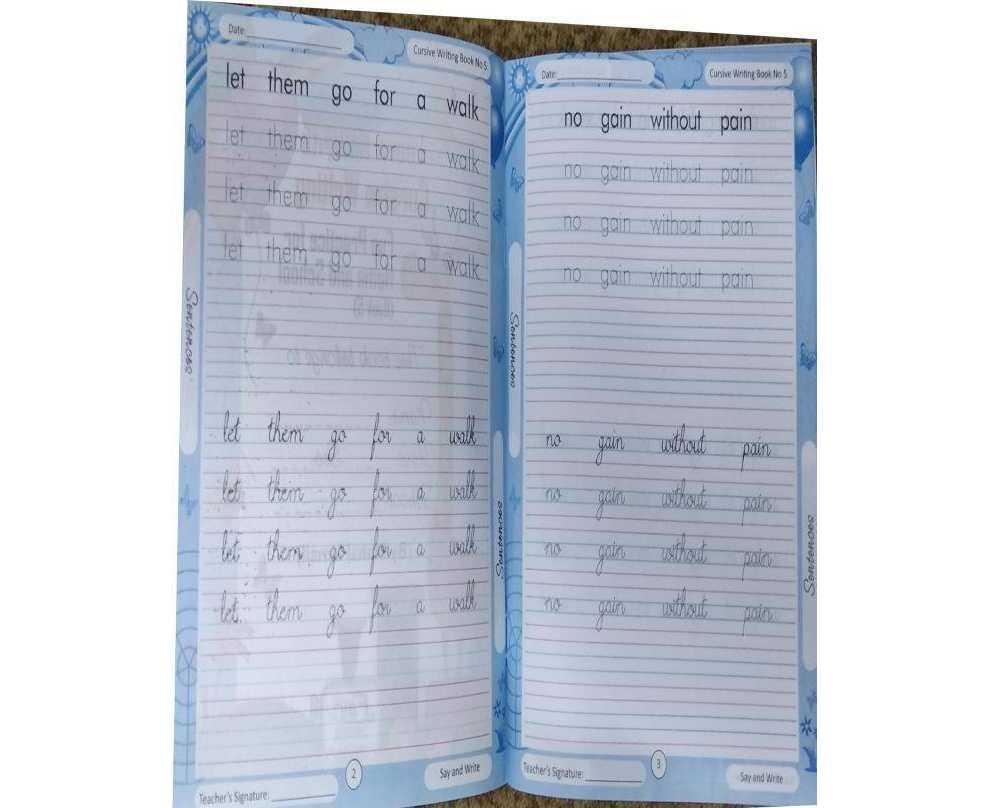 Date:
Cursive Writing Book No 5
let them go for a walk
let them go for a walk
let them go for a walk
let them go for a walk
Sentences
let them go for a walk
let them go for a walk
let them go for a walk
let them go for a walk
Sentences
Teacher's Signature:
2
Say and Write
Date:
Cursive Writing Book No 5
no gain without pain
no gain without pain
no gain without pain
no gain without pain
Sentences
no gain without pain
no gain without pain
no gain without pain
no gain without pain
Sentences
Teacher's Signature:
3
Say and Write